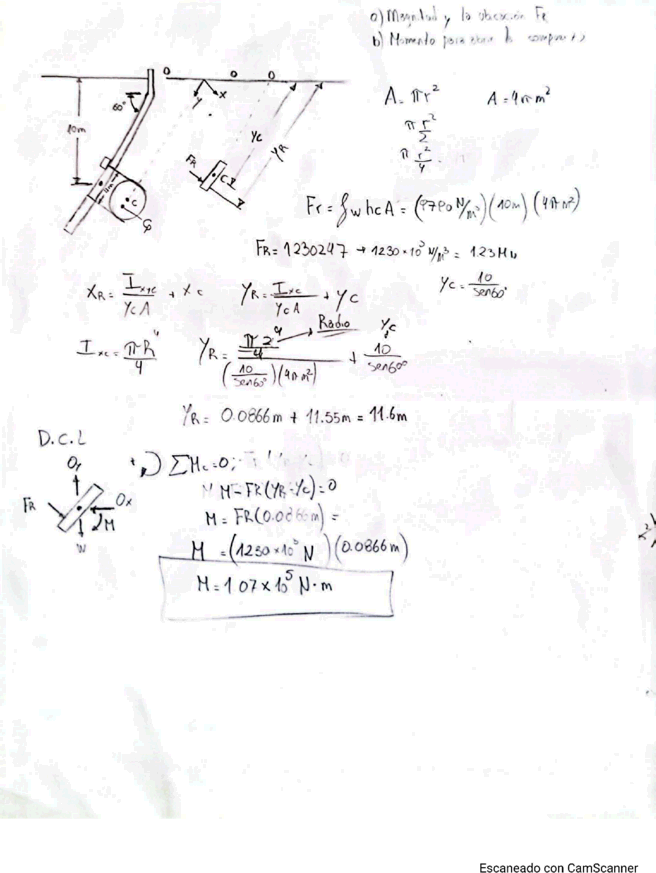 a) Magnitud y la ubicación FR
b) Momento para abrir la compuerta
O O O
60°
x
y
10m
Yc
YR
FR
C
C
A = πr² A = 4πm²
π r²/2
π r²/4
Fr = γw hc A = (9790 N/m³)(10m)(4πm²)
FR = 1230247 → 1230×10³ N/m³ = 1.23 MN
XR = Ixyc/YcA + Xc YR = Ixc/YcA + Yc Yc = 10/sen60°
Radio
Ixc = πR⁴/4 YR = (π2⁴/4)/((10/sen60°)(4πm²)) + 10/sen60° Yc
YR = 0.0866m + 11.55m = 11.6m
D.C.L
Oy
FR
Ox
M
W
+ ) ΣMc = 0;
M - FR(YR - Yc) = 0
M = FR(0.0866m) =
M = (1230×10³ N)(0.0866m)
M = 1.07×10⁵ N·m
Escaneado con CamScanner